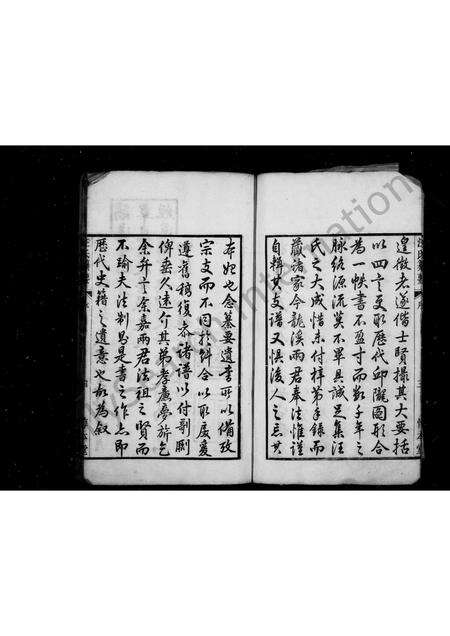 遑徵老遂偕士賢撮其大要括
以四言更取歷代邱隴圖形合
為一帙書不盈寸而數千年之
脉絡源流莫不畢具誠足集汪
氏之大成惜未付梓第手錄而
藏諸家今龍溪兩君奉法惟謹
自輯其支譜又惧後人之忘其
本始也念墓要遺書所以備攷
宗支而不同於餖飣合以取廣爰
遵舊稿復参諸譜以付剞劂
俾垂久遠介其弟孝廉夢旂乞
余弁言余嘉兩君法祖之賢而
不瑜夫法制昜是書之作亦即
歷代史籍之遺意也故為叙
International